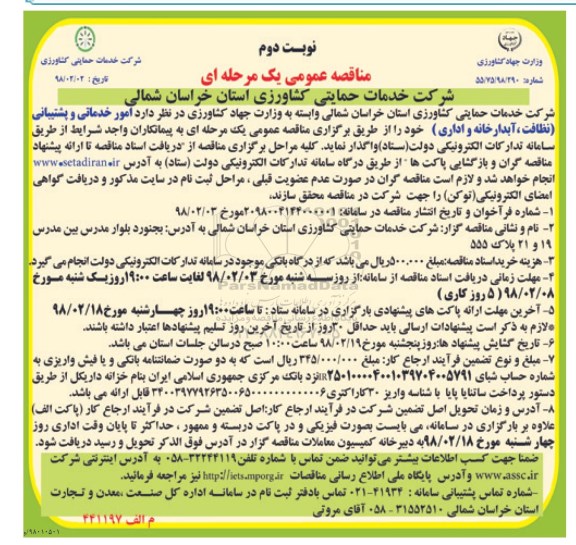 نوبت دوم
وزارت جهاد کشاورزی
شرکت خدمات حمایتی کشاورزی
شماره: ۵۵/۷۵/۹۸/۲۹۰
تاریخ: ۹۸/۰۲/۰۲
مناقصه عمومی یک مرحله ای
شرکت خدمات حمایتی کشاورزی استان خراسان شمالی
شرکت خدمات حمایتی کشاورزی استان خراسان شمالی وابسته به وزارت جهاد کشاورزی در نظر دارد امور خدماتی و پشتیبانی
(نظافت،آبدارخانه و اداری) خود را از طریق برگزاری مناقصه عمومی یک مرحله ای به پیمانکاران واجد شرایط از طریق
سامانه تدارکات الکترونیکی دولت(ستاد)واگذار نماید. کلیه مراحل برگزاری مناقصه از دریافت اسناد مناقصه تا ارائه پیشنهاد
مناقصه گران و بازگشایی پاکت ها از طریق درگاه سامانه تدارکات الکترونیکی دولت (ستاد) به آدرس www.setadiran.ir
انجام خواهد شد و لازم است مناقصه گران در صورت عدم عضویت قبلی ، مراحل ثبت نام در سایت مذکور و دریافت گواهی
امضای الکترونیکی(توکن) را جهت شرکت در مناقصه محقق سازند.
۱- شماره فرآخوان و تاریخ انتشار مناقصه در سامانه: ۲۰۹۸۰۰۴۱۴۴۰۰۰۰۰۱مورخ ۹۸/۰۲/۰۳
۲- نام و نشانی مناقصه گزار: شرکت خدمات حمایتی کشاورزی استان خراسان شمالی به آدرس: بجنورد بلوار مدرس بین مدرس
۱۹ و ۲۱ پلاک ۵۵۵
۳- هزینه خریداسناد مناقصه:مبلغ ۵۰۰.۰۰۰ریال می باشد که از درگاه بانکی موجود در سامانه تدارکات الکترونیکی دولت انجام می گیرد.
۴- مهلت زمانی دریافت اسناد مناقصه از سامانه:از روز سه شنبه مورخ ۹۸/۰۲/۰۳ لغایت ساعت ۱۹:۰۰روز یک شنبه مورخ
۹۸/۰۲/۰۸ (۵ روز کاری)
۵- آخرین مهلت ارائه پاکت های پیشنهادی بارگزاری در سامانه ستاد: تا ساعت۱۹:۰۰روز چهارشنبه مورخ۹۸/۰۲/۱۸
*لازم به ذکر است پیشنهادات ارسالی باید حداقل ۳۰روز از تاریخ آخرین روز تسلیم پیشنهادها اعتبار داشته باشند.
۶- تاریخ گشایش پیشنهاد ها:روزپنجشنبه مورخ۹۸/۰۲/۱۹ ساعت۱۰:۰۰ صبح درسالن جلسات استان می باشد.
۷- مبلغ و نوع تضمین فرآیند ارجاع کار: مبلغ ۳۴۵/۰۰۰/۰۰۰ ریال است که به دو صورت ضمانتنامه بانکی و یا فیش واریزی به
نزد بانک مرکزی جمهوری اسلامی ایران بنام خزانه داریکل از طریق
۸- آدرس و زمان تحویل اصل تضمین شرکت در فرآیند ارجاع کار:اصل تضمین شرکت در فرآیند ارجاع کار (پاکت الف)
علاوه بر بارگذاری در سامانه، می بایست بصورت فیزیکی و در پاکت دربسته و ممهور ، حداکثر تا پایان وقت اداری روز
چهار شنبه مورخ ۹۸/۰۲/۱۸به دبیرخانه کمیسیون معاملات مناقصه گزار در آدرس فوق الذکر تحویل و رسید دریافت شود.
ضمنا جهت کسب اطلاعات بیشتر می توانید ضمن تماس با شماره تلفن۳۲۲۴۴۱۱۹-۰۵۸ به آدرس اینترنتی شرکت
www.assc.ir وآدرس پایگاه ملی اطلاع رسانی مناقصات http://iets.mporg.ir نیز مراجعه فرمائید.
-شماره تماس پشتیبانی سامانه: ۴۱۹۳۴-۰۲۱ تماس بادفتر ثبت نام در سامانه اداره کل صنعت ،معدن و تجارت
استان خراسان شمالی ۳۱۵۵۲۵۱۰ - ۰۵۸ آقای مروتی
م الف ۴۴۱۱۹۷
ParsNamadData